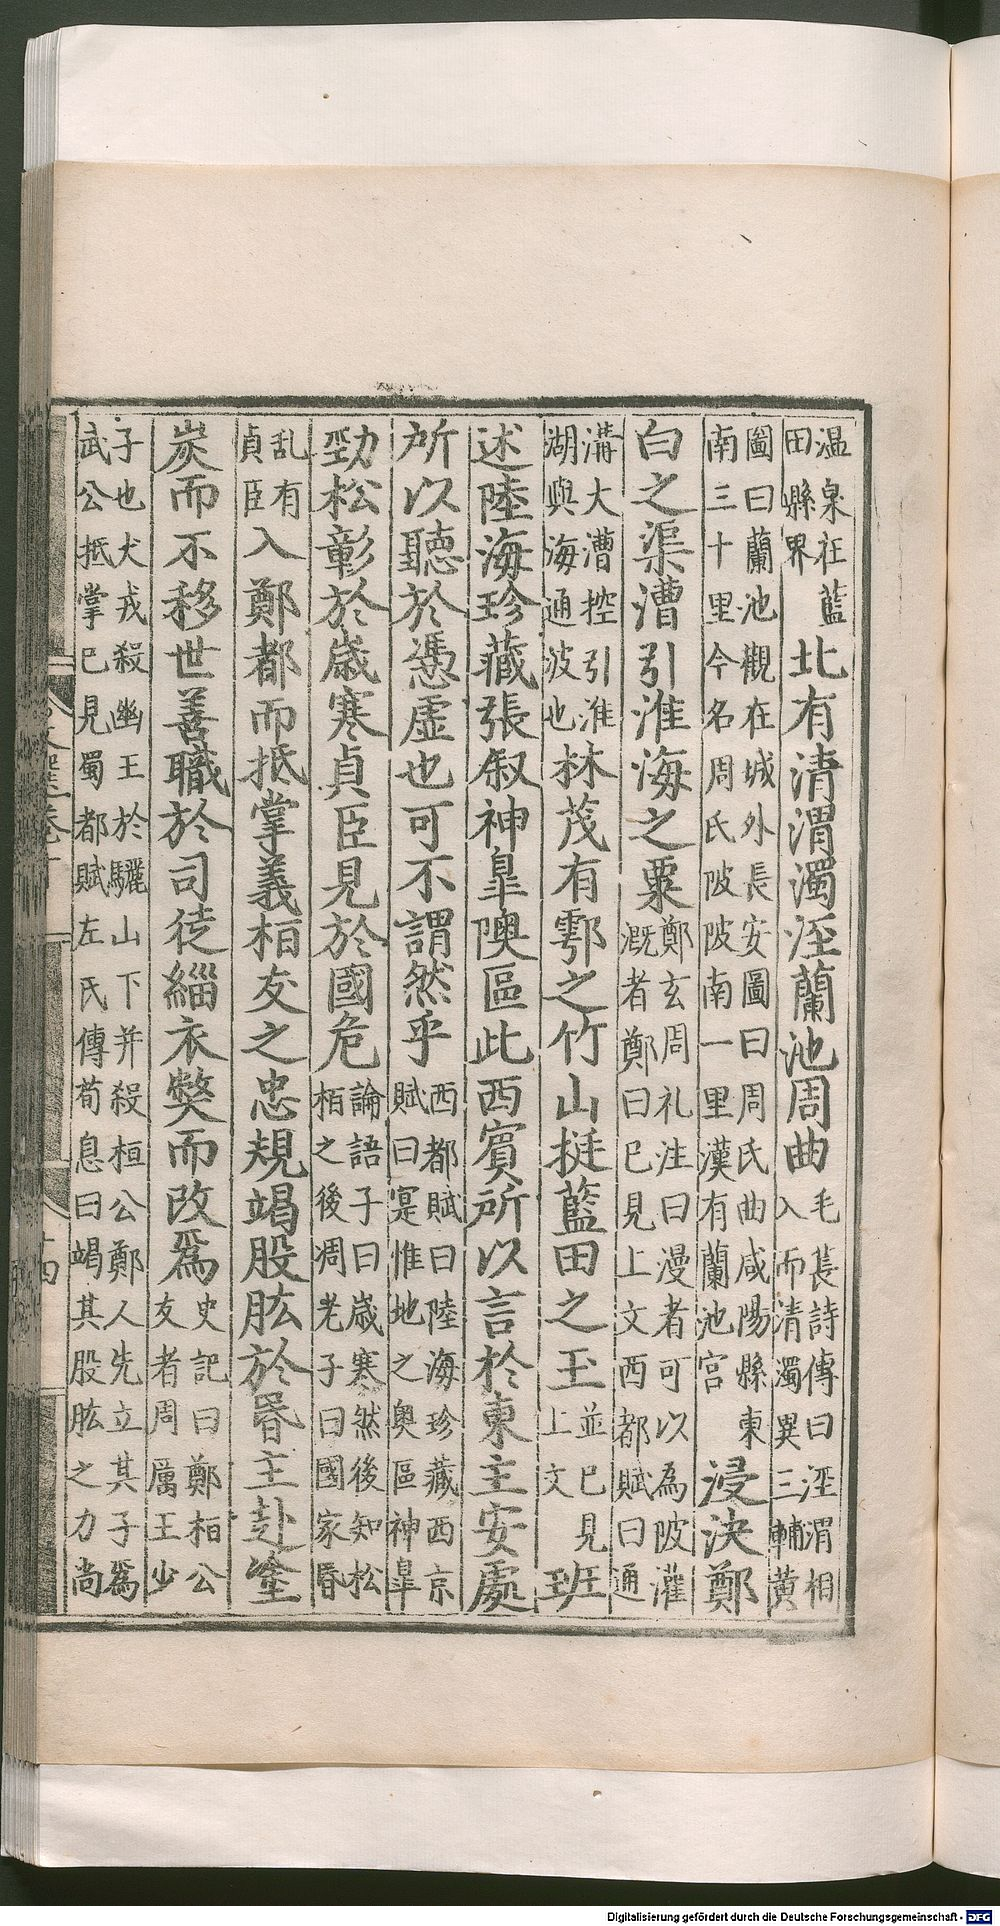 温泉在藍田縣界北有清渭濁涇蘭池周曲毛萇詩傳曰涇渭相入而清濁異三輔黃
圖曰蘭池觀在城外長安圖曰周氏曲咸陽縣東南三十里今名周氏陂陂南一里漢有蘭池宮浸決鄭
白之渠漕引淮海之粟鄭玄周礼注曰漫者可以為陂灌溉者鄭曰已見上文西都賦曰通
溝大漕控引淮湖與海通波也林茂有鄠之竹山挺藍田之玉並已見上文班
述陸海珍藏張叙神臯隩區此西賓所以言於東主安處
所以聽於憑虛也可不謂然乎西都賦曰陸海珍藏西京賦曰寔惟地之奧區神臯
勁松彰於歲寒貞臣見於國危論語子曰歲寒然後知松栢之後凋老子曰國家昬
乱有貞臣入鄭都而抵掌義栢友之忠規竭股肱於昬主赴塗
炭而不移世善職於司徒緇衣獘而改爲史記曰鄭栢公友者周厲王少
子也犬戎殺幽王於驪山下并殺桓公鄭人先立其子爲武公抵掌已見蜀都賦左氏傳荀息曰竭其股肱之力尚
十四
Digitalisierung gefördert durch die Deutsche Forschungsgemeinschaft - DFG